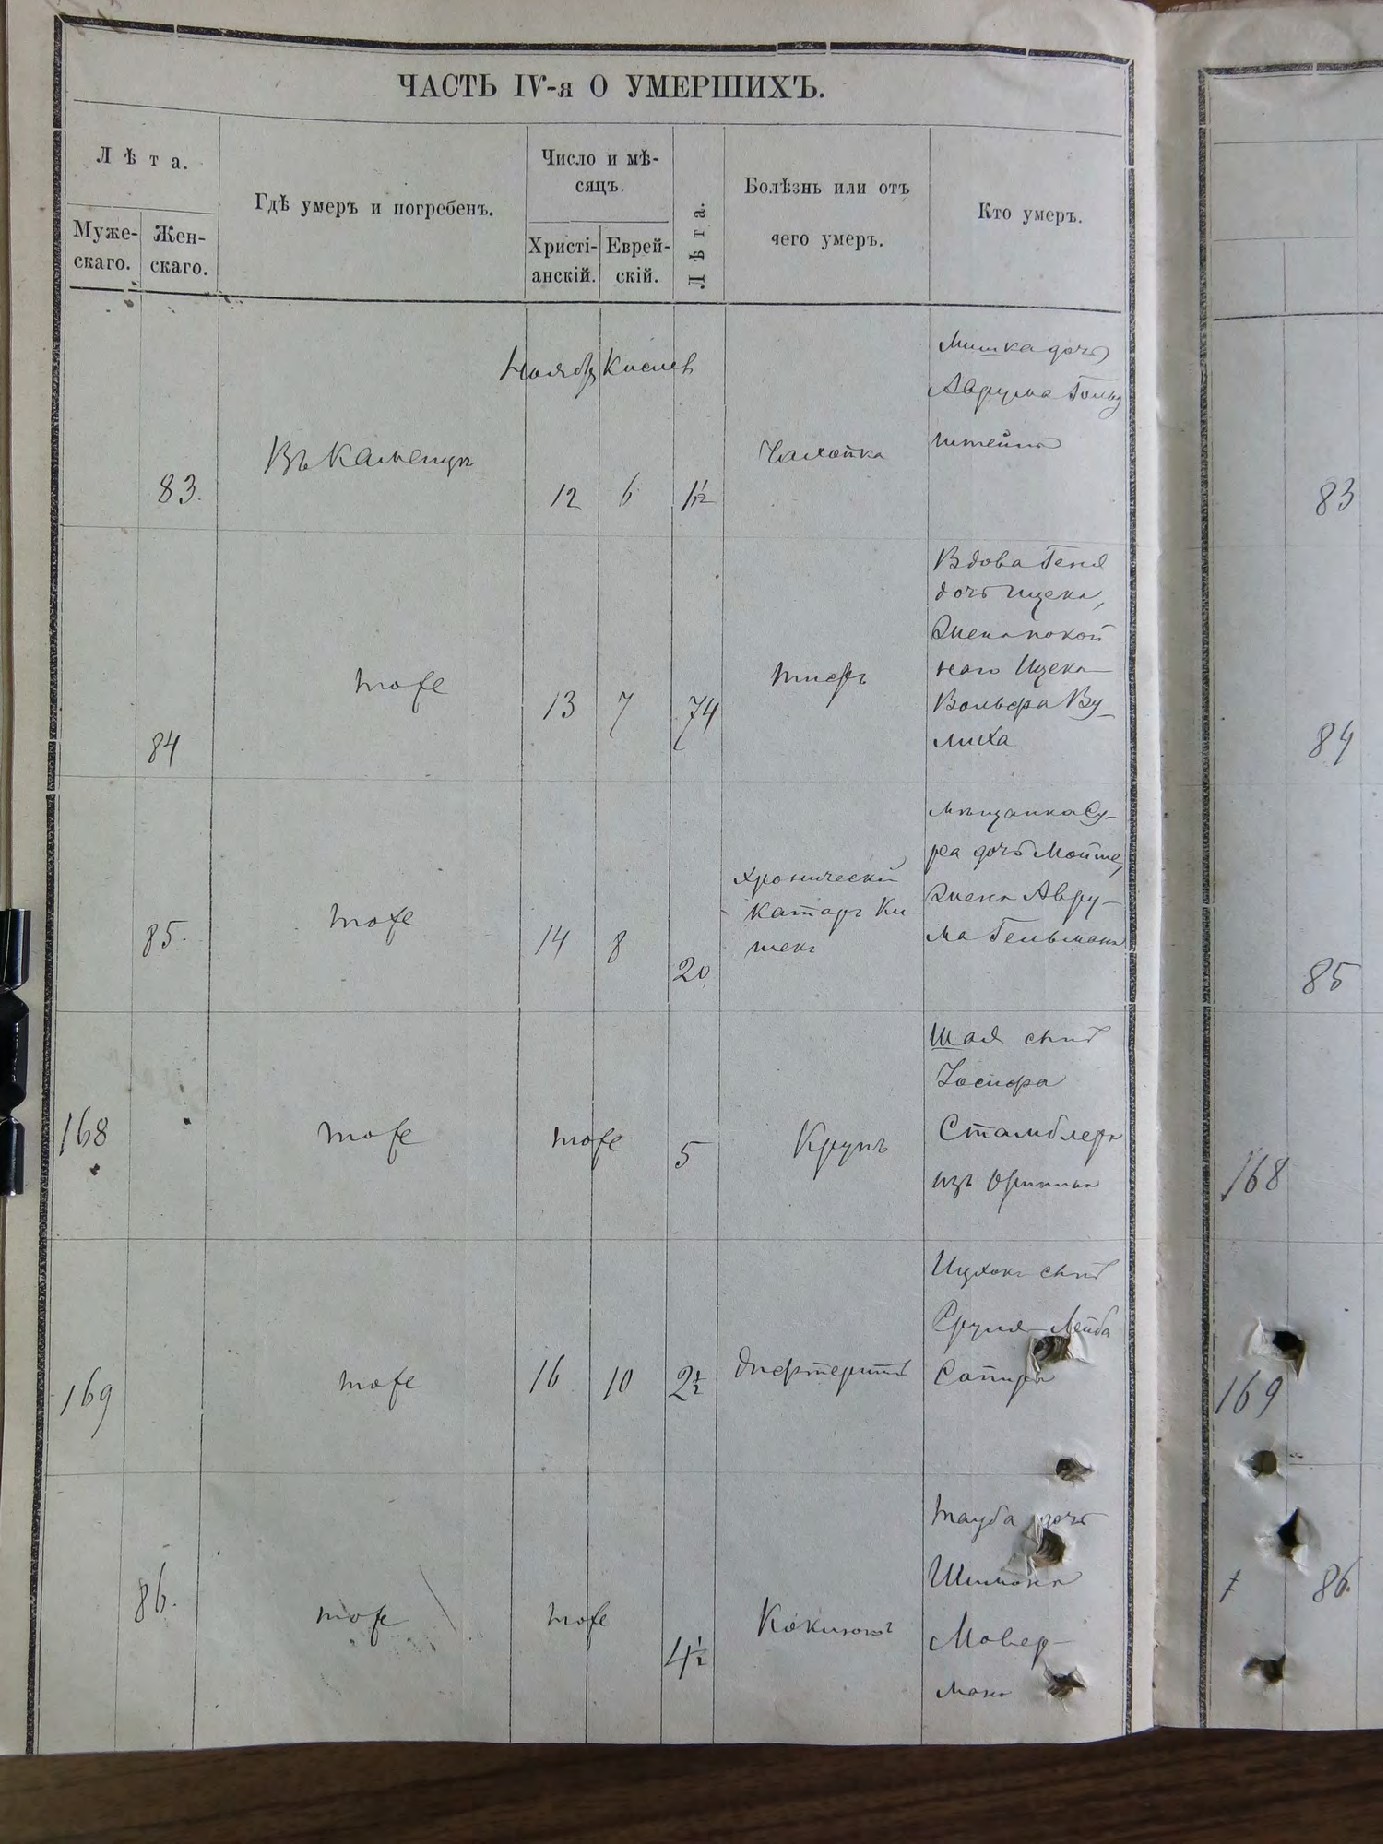 ЧАСТЬ IV-я О УМЕРШИХЪ.
Лѣта.
Муже-
скаго.
Жен-
скаго.
Гдѣ умеръ и погребенъ.
Число и мѣ-
сяцъ.
Христі-
анскій.
Еврей-
скій.
Лѣта.
Болѣзнь или отъ
чего умеръ.
Кто умеръ.
Ноябр Кислев
83.
Въ Каменцѣ
12
6
1½
Чахотка
Мишка дочь
Аврума Гольд
штейна
83
84
тоже
13
7
74
тифъ
Вдова Геня
дочь Ицека,
жена покой
наго Ицека
Вольфа Ву-
лиха
84
85.
тоже
14
8
20
хронически
катаръ Ки
шекъ
мѣщанка Су-
ра дочь Мойше,
жена Авру-
ма Гельмана
85
168
тоже
тоже
5
Крупъ
Шая сынъ
Иосифа
Стамблера
изъ
168
169
тоже
16
10
2½
дифтеритъ
Ицхокъ сынъ
Сруля-Лейба
Сапира
169
86.
тоже
тоже
4½
Коклюшъ
Тауба дочь
Шимона
Мовер-
мана
86.